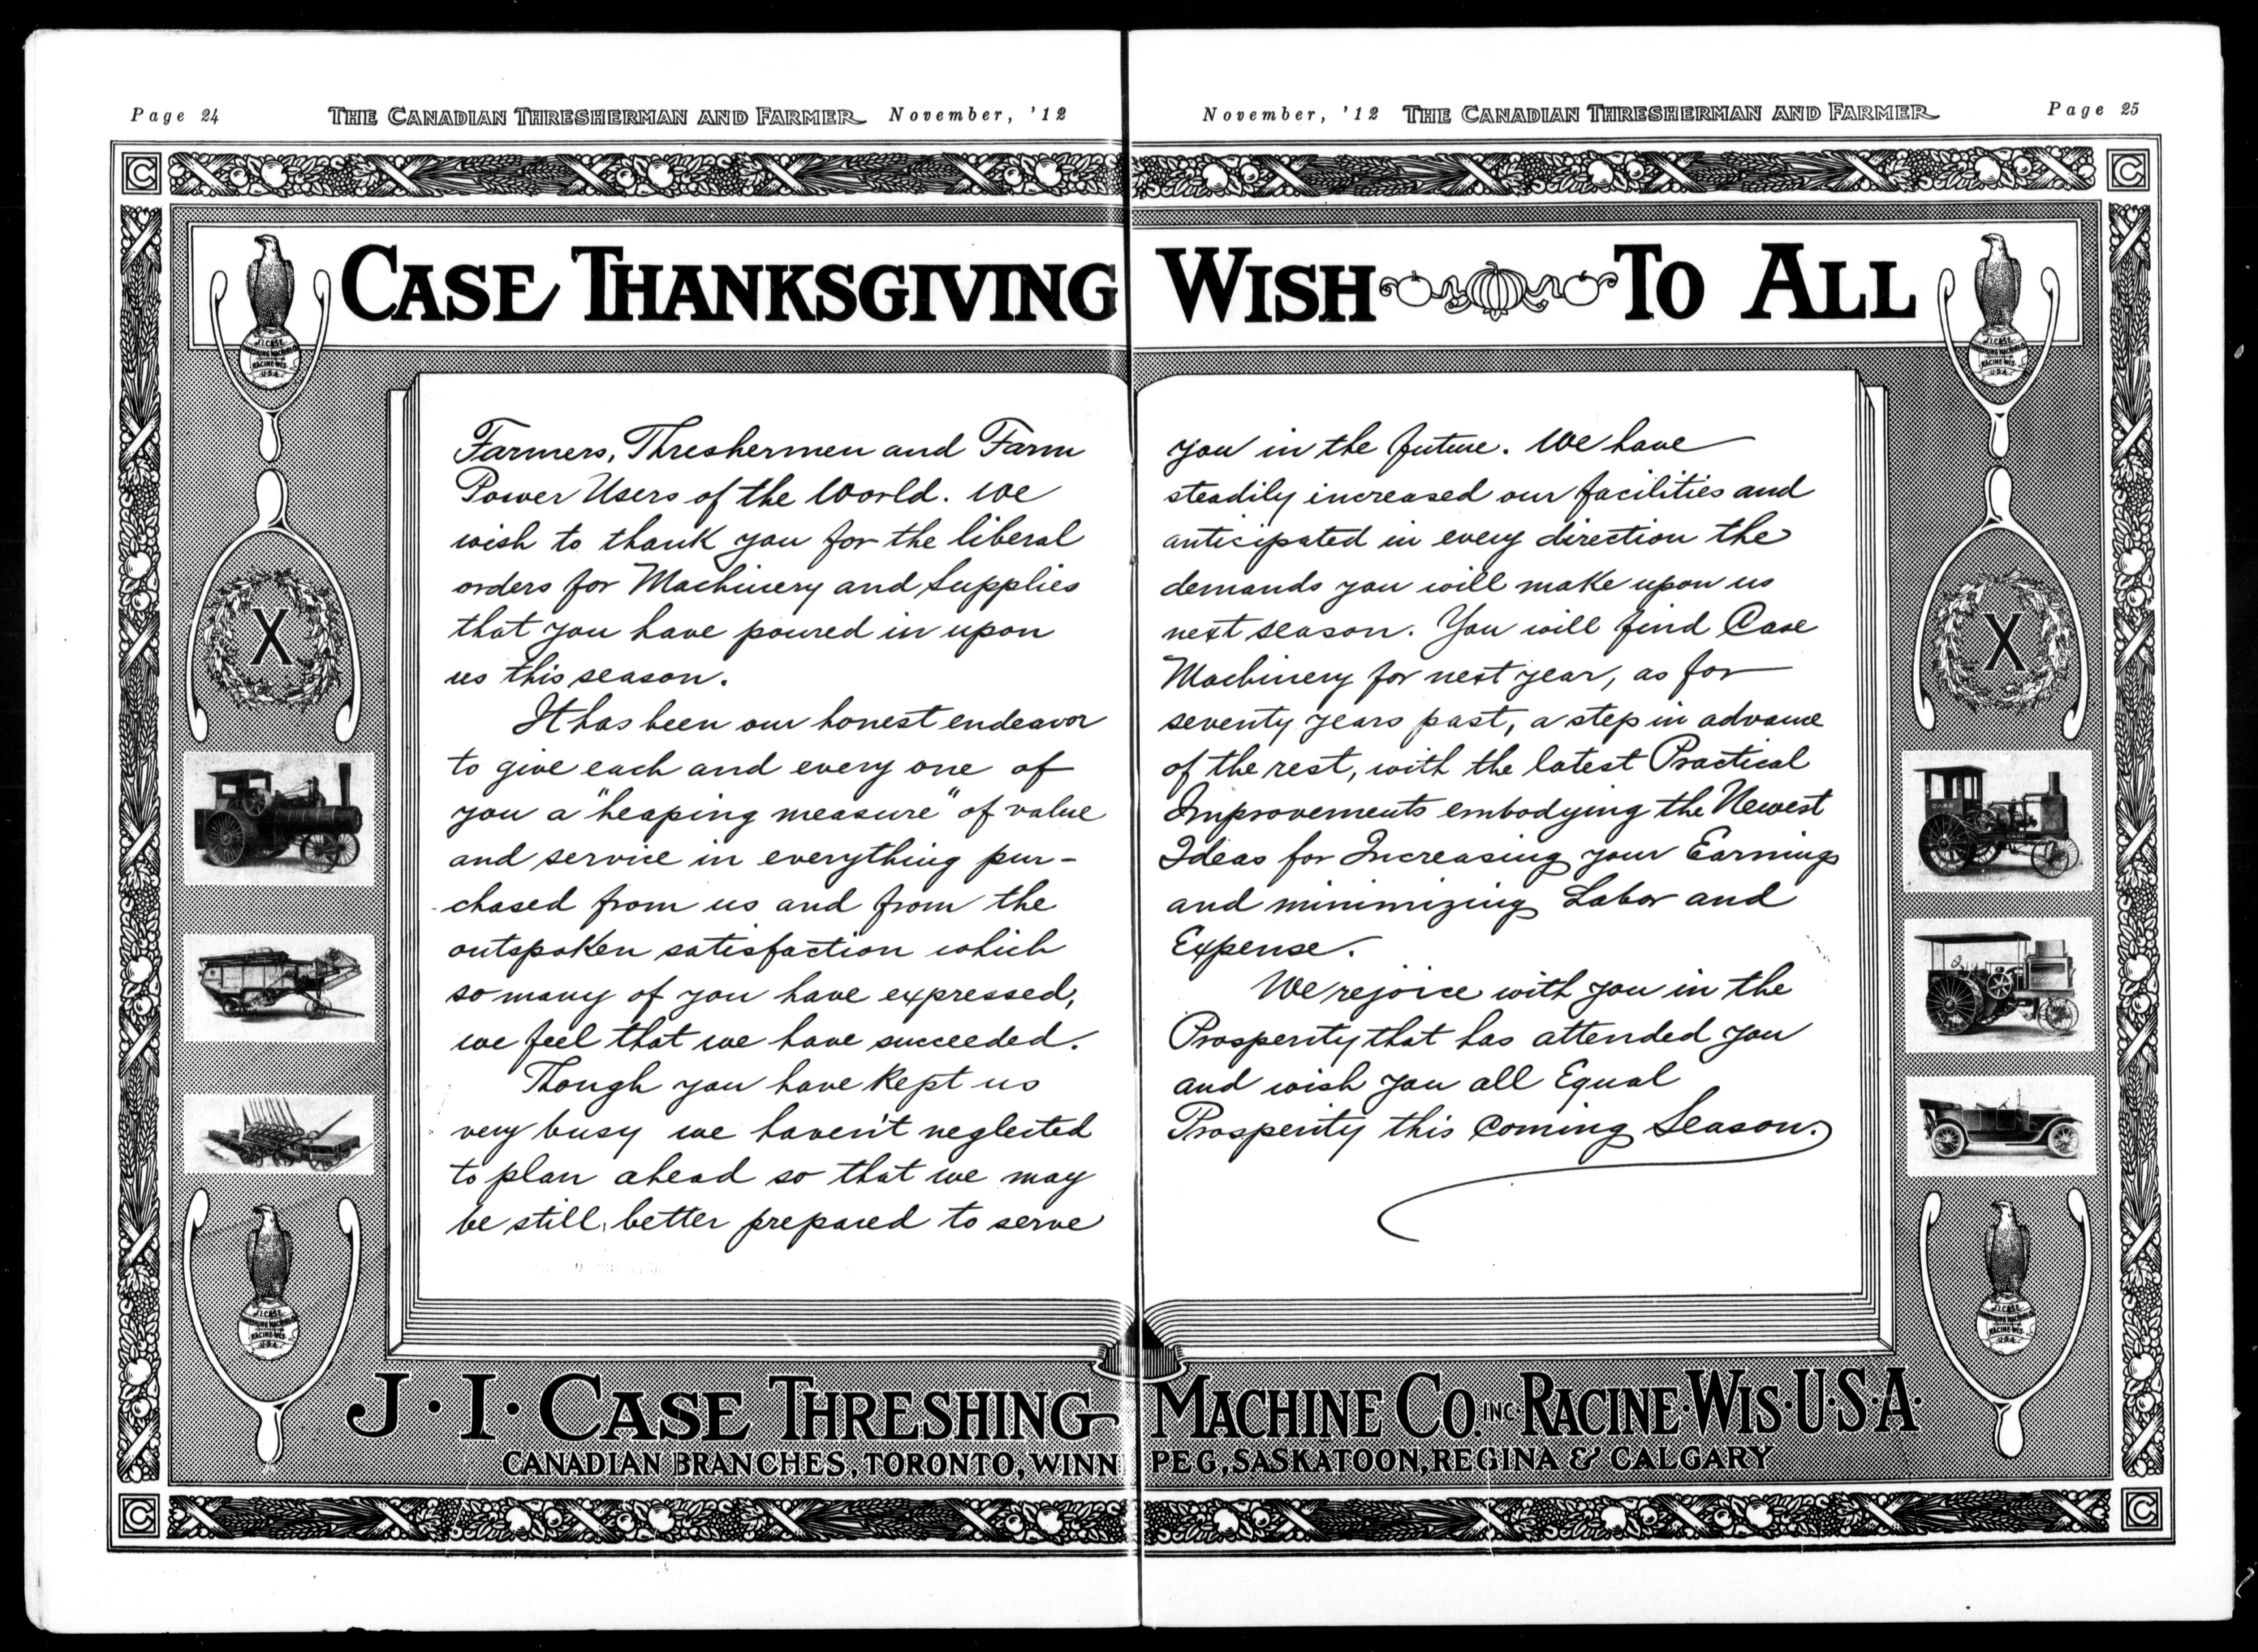 Page 24
THE CANADIAN THRESHERMAN AND FARMER
November, '12
November, '12
THE CANADIAN THRESHERMAN AND FARMER
Page 25
C
C
CASE THANKSGIVING WISH TO ALL
J.I.CASE
THRESHING MACHINE CO.
RACINE-WIS.
U.S.A.
J.I.CASE
THRESHING MACHINE CO.
RACINE-WIS.
U.S.A.
Farmers, Threshermen and Farm
Power Users of the World. We
wish to thank you for the liberal
orders for Machinery and Supplies
that you have poured in upon
us this season.
It has been our honest endeavor
to give each and every one of
you a "heaping measure" of value
and service in everything pur-
-chased from us and from the
outspoken satisfaction which
so many of you have expressed,
we feel that we have succeeded.
Though you have kept us
very busy we haven't neglected
to plan ahead so that we may
be still, better prepared to serve
you in the future. We have
steadily increased our facilities and
anticipated in every direction the
demands you will make upon us
next season. You will find Case
Machinery for next year, as for
seventy years past, a step in advance
of the rest, with the latest Practical
Improvements embodying the Newest
Ideas for Increasing your Earnings
and minimizing Labor and
Expense.
We rejoice with you in the
Prosperity that has attended you
and wish you all Equal
Prosperity this Coming Season.
X
X
CASE
CASE
J.I.CASE
THRESHING MACHINE CO.
RACINE-WIS.
U.S.A.
J.I.CASE
THRESHING MACHINE CO.
RACINE-WIS.
U.S.A.
J·I·CASE THRESHING MACHINE CO. INC·RACINE·WIS·U·S·A·
CANADIAN BRANCHES, TORONTO, WINNIPEG, SASKATOON, REGINA & CALGARY
C
C